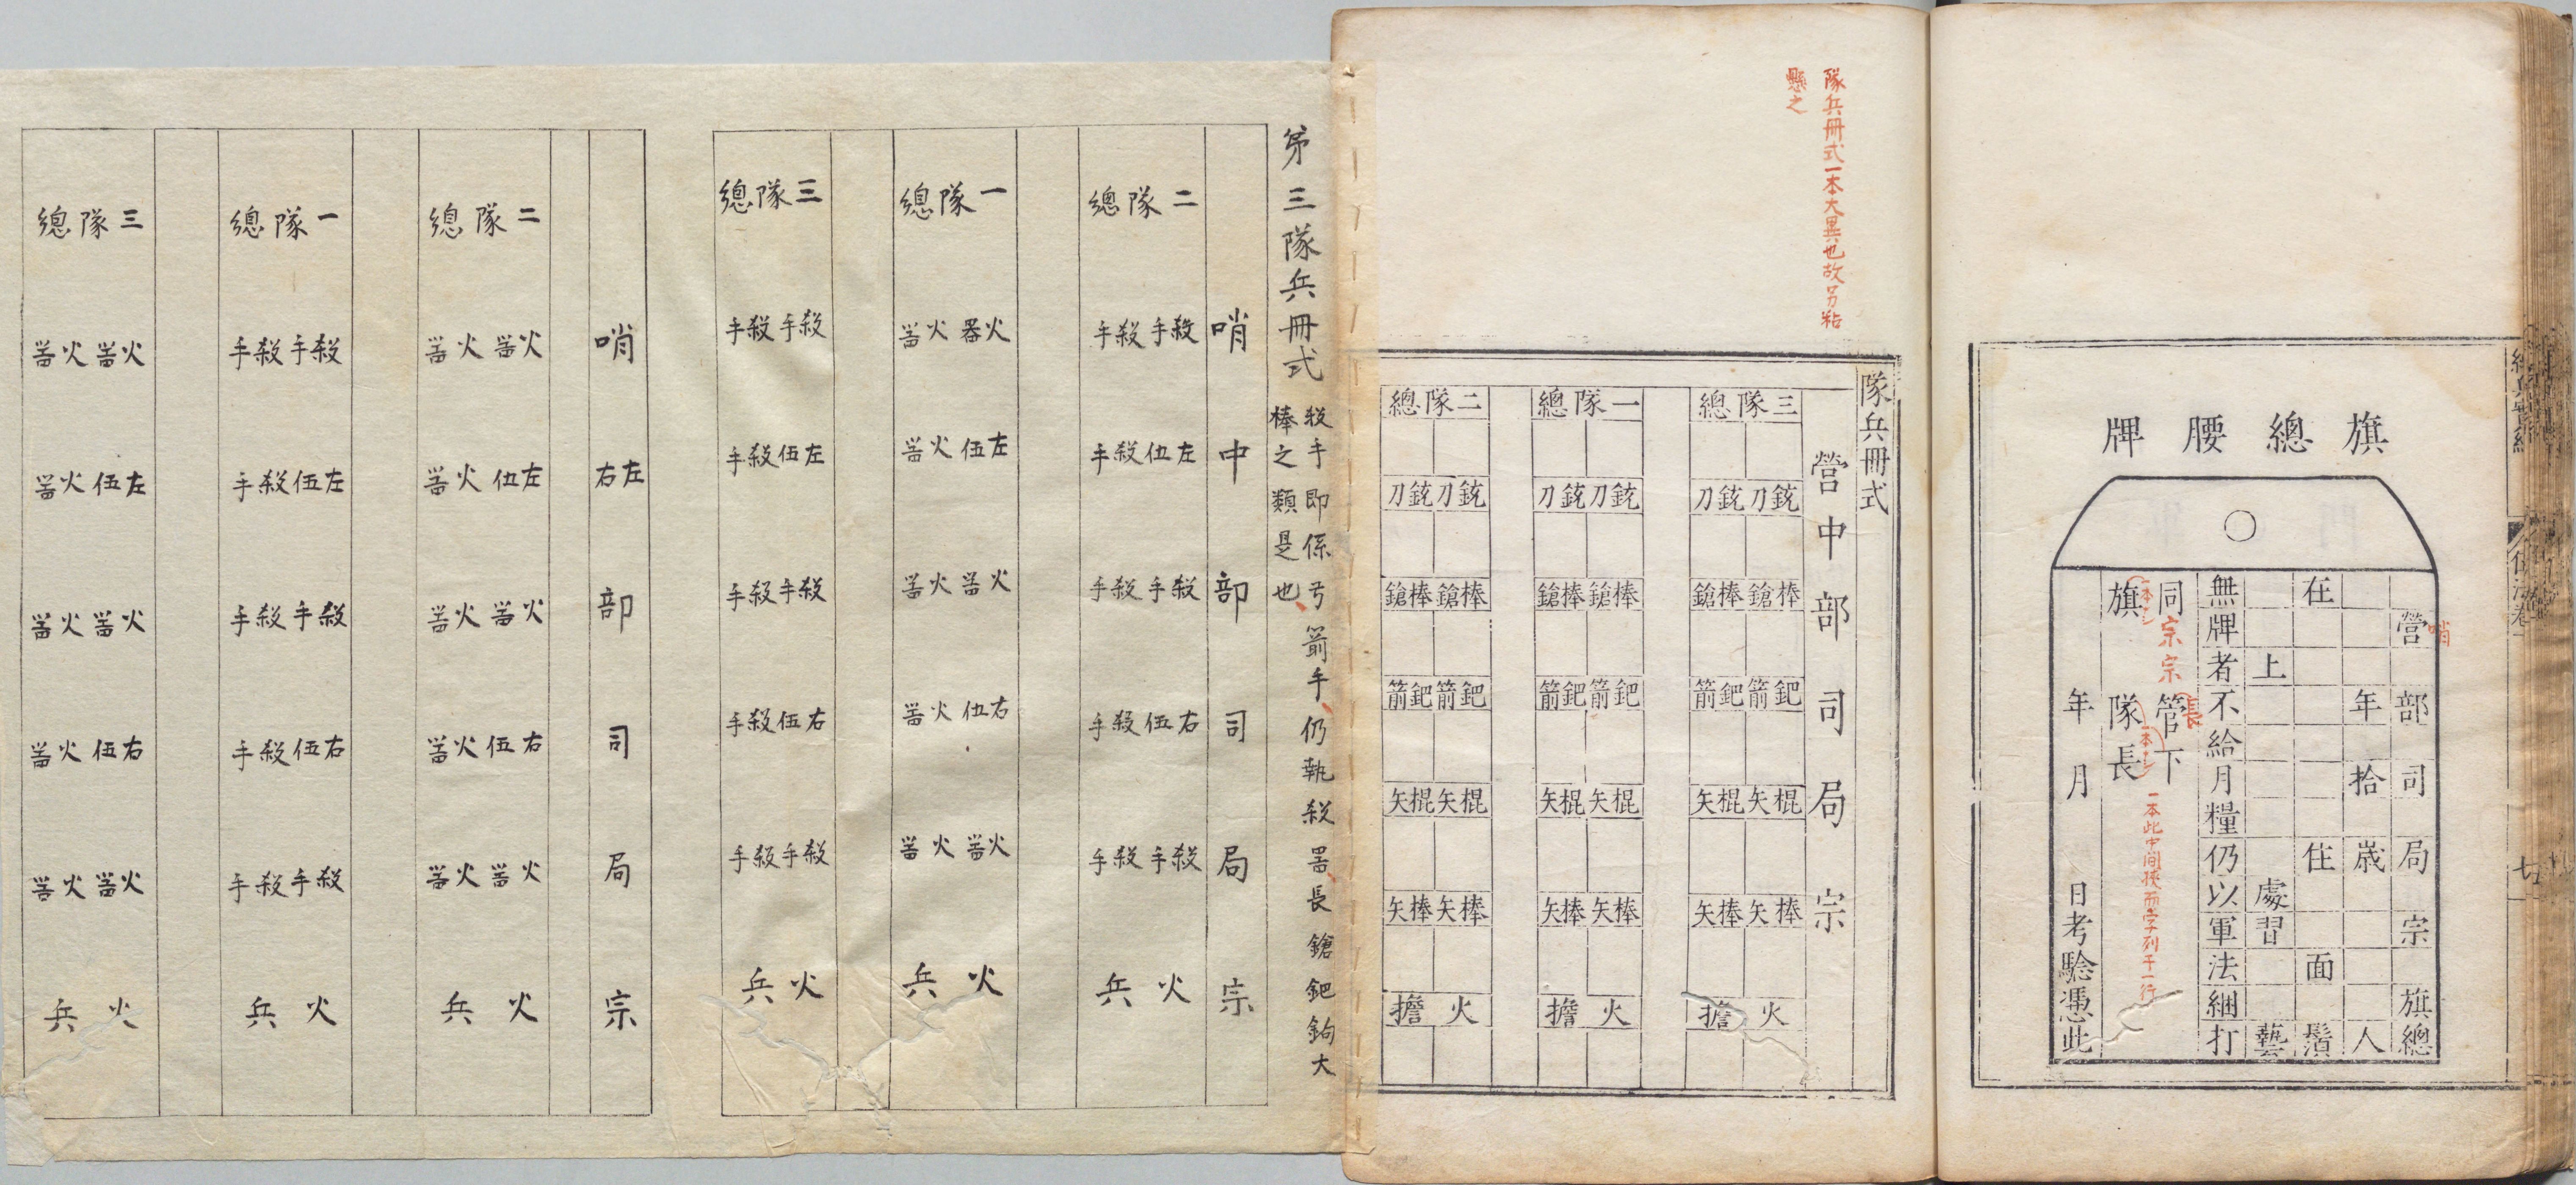 旗總腰牌
營部司局宗旗總
哨
年拾歲人
在住面鬚
上處習藝
無牌者不給月糧仍以軍法綑打
同宗宗管下
長
旗隊長
一本此中間挾而字列于一行
年月日考驗憑此
隊兵冊式一本大異也故另粘
懸之
隊兵冊式
營中部司局宗
三隊總
鈗刀鈗刀
棒鎗棒鎗
鈀箭鈀箭
棍矢棍矢
棒矢棒矢
火擔
一隊總
鈗刀鈗刀
棒鎗棒鎗
鈀箭鈀箭
棍矢棍矢
棒矢棒矢
火擔
二隊總
鈗刀鈗刀
棒鎗棒鎗
鈀箭鈀箭
棍矢棍矢
棒矢棒矢
火擔
第三隊兵冊式
殺手即係弓箭手仍執殺噐長鎗鈀鉤大
棒之類是也
哨中部司局宗
二隊總
殺手殺手
左伍殺手
殺手殺手
右伍殺手
殺手殺手
火兵
一隊總
火器火噐
左伍火噐
火噐火噐
右伍火噐
火噐火噐
火兵
三隊總
殺手殺手
左伍殺手
殺手殺手
右伍殺手
殺手殺手
火兵
哨左右部司局宗
二隊總
火噐火噐
左伍火噐
火噐火噐
右伍火噐
火噐火噐
火兵
一隊總
殺手殺手
左伍殺手
殺手殺手
右伍殺手
殺手殺手
火兵
三隊總
火噐火噐
左伍火噐
火噐火噐
右伍火噐
火噐火噐
火兵